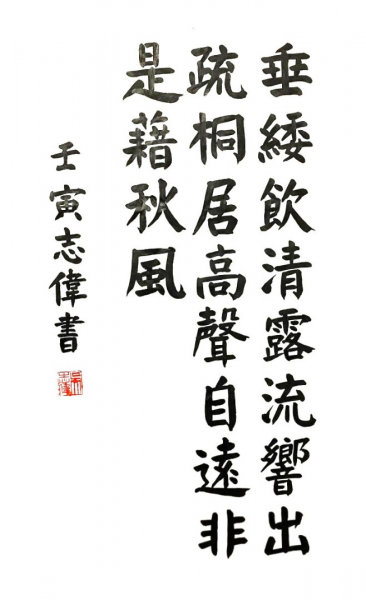 垂緌飲清露流響出
疏桐居高聲自遠非
是藉秋風
壬寅志偉書